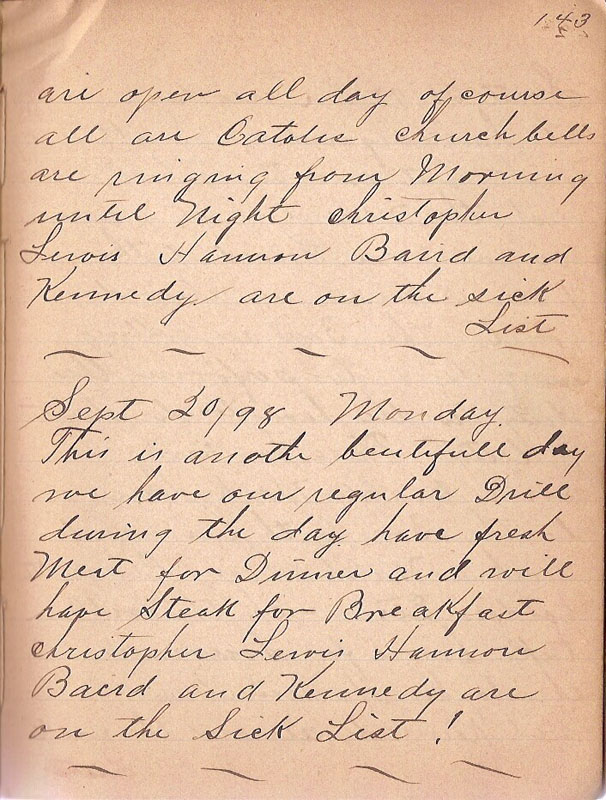 143
are open all day of course
all are Catolic church bells
are ringing from Morning
until Night christopher
Lewis Hannon Baird and
Kennedy are on the sick
List
Sept 20/98 Monday.
This is anothe beutifull day
we have our regular Drill
during the day have fresh
Meat for Dinner and will
have Steak for Breakfast
christopher Lewis Hannon
Baird and Kennedy are
on the Sick List !